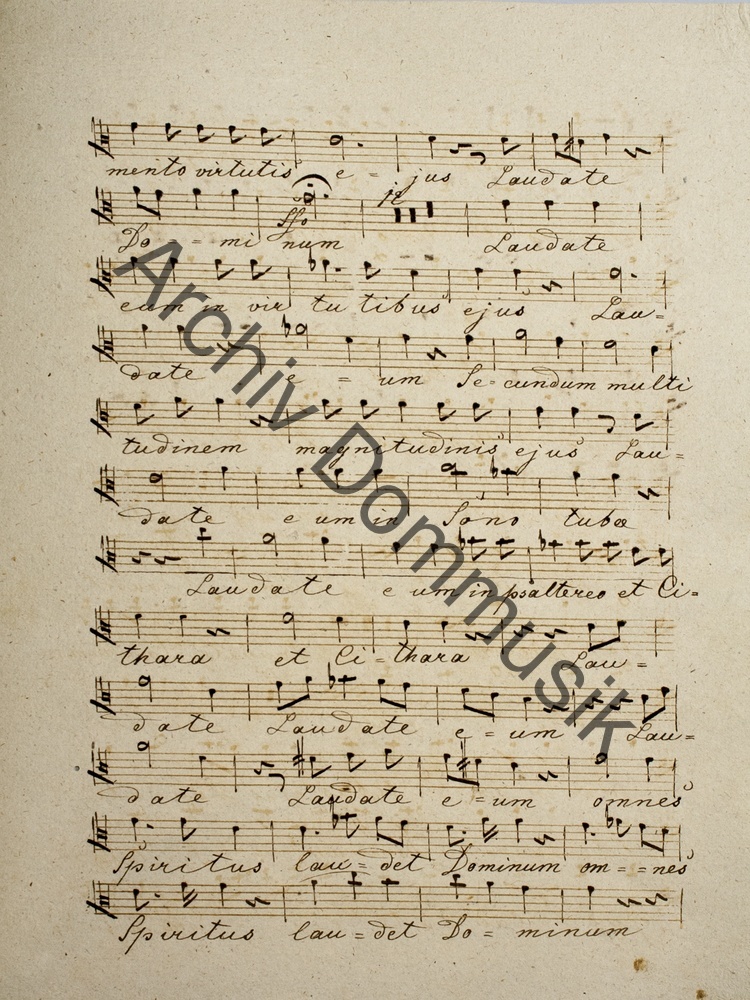 mento virtutis e = jus Laudate
Do = mi num Laudate
eum in vir tu tibus ejus Lau=
date e = um Se=cundum multi
tudinem magnitudinis ejus Lau=
date e um in Sono tubæ
Laudate e um in psaltereo et Ci=
thara et Ci=thara Lau=
date Laudate e=um Lau=
date Laudate e=um omnes
Spiritus lau=det Dominum om==nes
Spiritus lau=det Do= minum
Archiv Dommusik